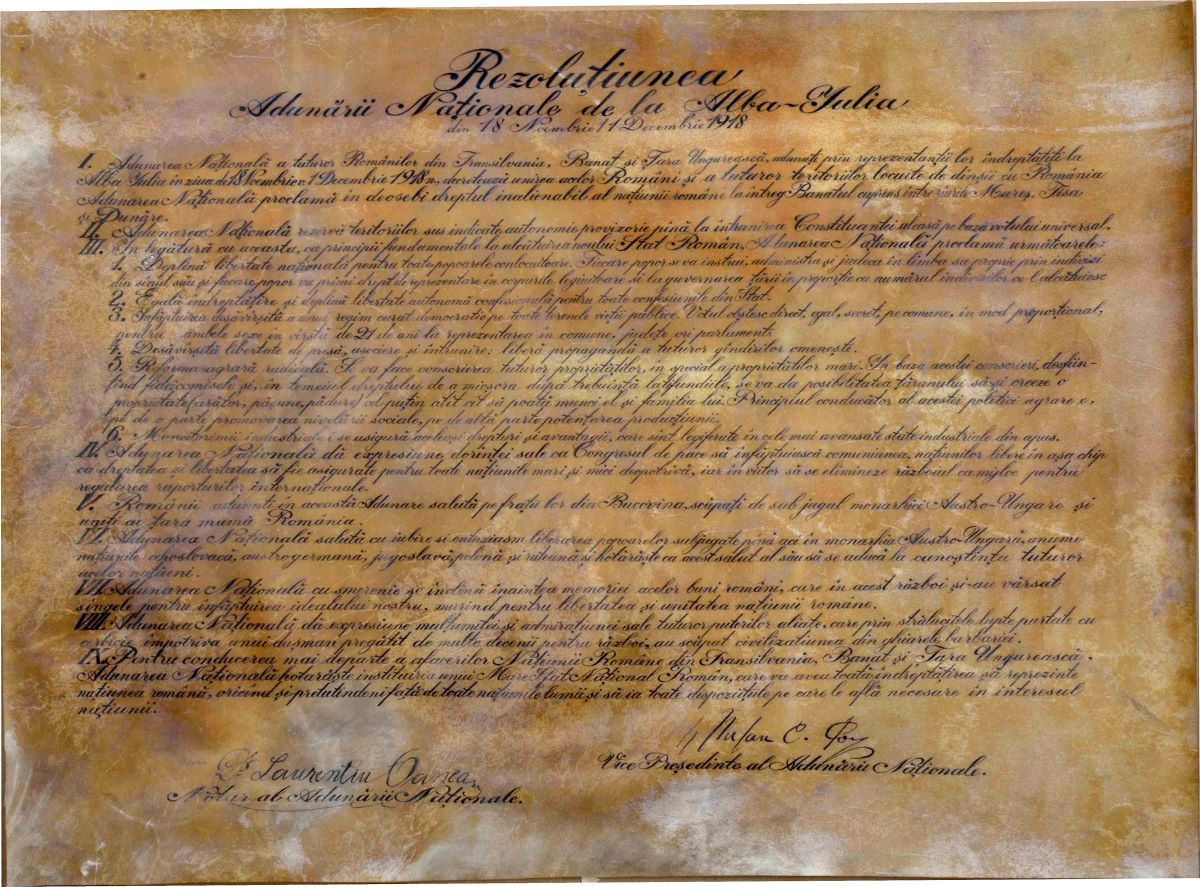 Rezoluțiunea
Adunării Naționale de la Alba-Iulia
din 18 Noembrie/1 Decembrie 1918
I. Adunarea Națională a tuturor Românilor din Transilvania, Banat și Țara Ungurească, adunați prin reprezentanții lor îndreptățiți la
Alba Iulia în ziua de 18 Noembrie v. 1 Decembrie 1918 n., decretează unirea acelor Români și a tuturor teritoriilor locuite de dînșii cu România
Adunarea Națională proclamă în deosebi dreptul inalienabil al națiunii române la întreg Banatul cuprins între rîurile Mureș, Tisa
și Dunăre.
II. Adunarea Națională rezervă teritoriilor sus indicate autonomie provizorie pînă la întrunirea Constituantei aleasă pe baza votului universal.
III. În legătură cu aceasta, ca principii fundamentale la alcătuirea noului Stat Român, Adunarea Națională proclamă următoarele:
1. Deplină libertate națională pentru toate popoarele conlocuitoare. Fiecare popor se va instrui, administra și judeca în limba sa proprie prin indivizi
din sînul său și fiecare popor va primi drept de reprezentare în corpurile legiuitoare și la guvernarea țării în proporție cu numărul indivizilor ce-l alcătuiesc
2. Egală îndreptățire și deplină libertate autonomă confesională pentru toate confesiunile din Stat.
3. Înfăptuirea desăvîrșită a unui regim curat democratic pe toate terenele vieții publice. Votul obștesc, direct, egal, secret, pe comune, în mod proporțional,
pentru ambele sexe în vîrstă de 21 de ani la reprezentarea în comune, județe ori parlament.
4. Desăvîrșită libertate de presă, asociere și întrunire; liberă propagandă a tuturor gîndirilor omenești.
5. Reforma agrară radicală. Se va face conscrierea tuturor proprietăților, în special a proprietăților mari. În baza acestei conscrieri, desfiin-
țînd fedeicomisele și, în temeiul dreptului de a micșora după trebuință latifundiile, se va da posibilitatea țăranului să-și creeze o
proprietate (arător, pășune, pădure) cel puțin atît cît să poată munci el și familia lui. Principiul conducător al acestei politici agrare e,
pe de o parte promovarea nivelării sociale, pe de altă parte potențarea producțiunii.
6. Muncitorimii industriale i se asigură aceleași drepturi și avantagii, care sînt legiferate în cele mai avansate state industriale din apus.
IV. Adunarea Națională dă expresiune dorinței sale ca Congresul de pace să înfăptuiască comuniunea națiunilor libere în așa chip
ca dreptatea și libertatea să fie asigurate pentru toate națiunile mari și mici deopotrivă, iar în viitor să se elimineze războiul ca mijloc pentru
regularea raporturilor internaționale.
V. Românii adunați în această Adunare salută pe frații lor din Bucovina, scăpați de sub jugul monarhiei Austro-Ungare și
uniți cu țara mumă România.
VI. Adunarea Națională salută cu iubire și entuziasm liberarea popoarelor subjugate pînă aci în monarhia Austro-Ungară, anume
națiunile cehoslovacă, austrogermană, jugoslavă, polonă și ruteană și hotărăște ca acest salut al său să se aducă la cunoștința tuturor
acelor națiuni.
VII. Adunarea Națională cu smerenie se înclină înaintea memoriei acelor buni români, care în acest război și-au vărsat
sîngele pentru înfăptuirea idealului nostru, murind pentru libertatea și unitatea națiunii române.
VIII. Adunarea Națională dă expresiune mulțumitei și admirațiunei sale tuturor puterilor aliate, care prin strălucitele lupte purtate cu
cerbicie împotriva unui dușman pregătit de multe decenii pentru război, au scăpat civilizațiunea din ghiarele barbariei.
IX. Pentru conducerea mai departe a afacerilor Națiunii Române din Transilvania, Banat și Țara Ungurească,
Adunarea Națională hotărăște instituirea unui Mare Sfat Național Român, care va avea toată îndreptățirea să reprezinte
națiunea română, oricînd și pretutindeni față de toate națiunile lumii și să ia toate dispozițiile pe care le află necesare în interesul
națiunii.
Ștefan C. Pop
Vice Președinte al Adunării Naționale.
Dr Laurentiu Oanea
Notar al Adunării Naționale.